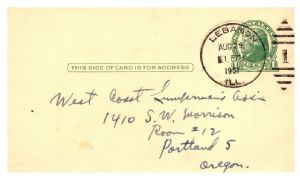 LEBANON
AUG 29
1951
ILL.
THIS SIDE OF CARD IS FOR ADDRESS
West Coast Lumberman's Ass'n
1410 S.W. Morrison
Room #12
Portland 5
Oregon.